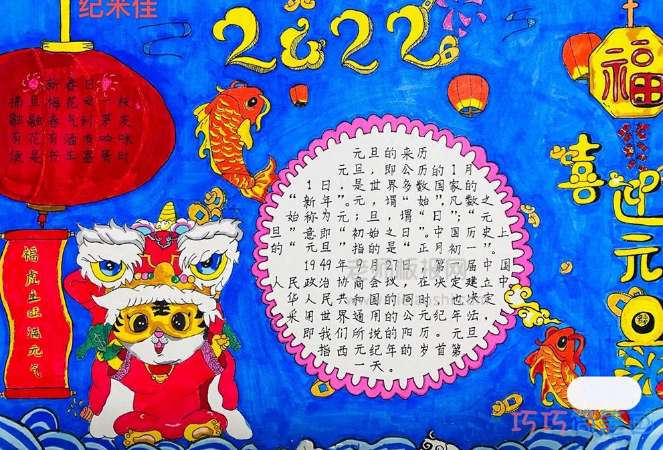 纪采佳
2022
福
喜迎元
新春日
旦梅花发一枝
融融春气到茅茨
有花有酒有吟咏
便是书生富贵时
福虎生旺满元气
元旦的来历
元旦，即公历的1月
1日，是世界多数国家的
“新年”。元，谓“始”，凡数之
始称为元；旦，谓“日”；“元
旦”意即“初始之日”。中国历史上
的“元旦”指的是“正月初一”。
1949年 月 第 届中国
人民政治协商会议，在决定建立中
华人民共和国的同时，也决定
采用世界通用的公元纪年法，
即我们所说的阳历。元旦
指西元纪年的岁首第
一天。
老师板报网
巧巧简笔画